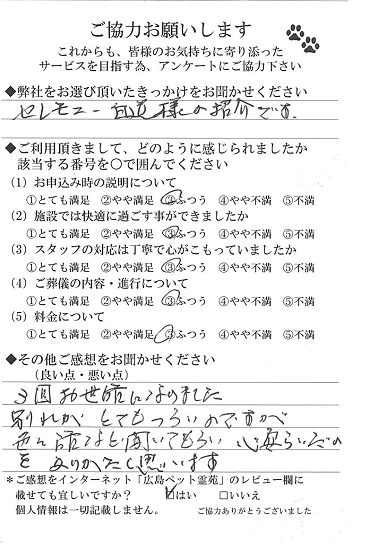 ご協力お願いします
これからも、皆様のお気持ちに寄り添った
サービスを目指す為、アンケートにご協力下さい
◆弊社をお選び頂いたきっかけをお聞かせください
セレモニー 様の紹介です.
◆ご利用頂きまして、どのように感じられましたか
該当する番号を〇で囲んでください
(1) お申込み時の説明について
①とても満足 ②やや満足 ③ふつう ④やや不満 ⑤不満
(2) 施設では快適に過ごす事ができましたか
①とても満足 ②やや満足 ③ふつう ④やや不満 ⑤不満
(3) スタッフの対応は丁寧で心がこもっていましたか
①とても満足 ②やや満足 ③ふつう ④やや不満 ⑤不満
(4) ご葬儀の内容・進行について
①とても満足 ②やや満足 ③ふつう ④やや不満 ⑤不満
(5) 料金について
①とても満足 ②やや満足 ③ふつう ④やや不満 ⑤不満
◆その他ご感想をお聞かせください
(良い点・悪い点)
3回お世話になりました
別れがとてもつらいのですが
色々話なと聞いてもらい 心安らいだの
を ありがたく思います
*ご感想をインターネット「広島ペット霊苑」のレビュー欄に
載せても宜しいですか? ☑はい □いいえ
個人情報は一切記載しません。 ご協力ありがとうございました